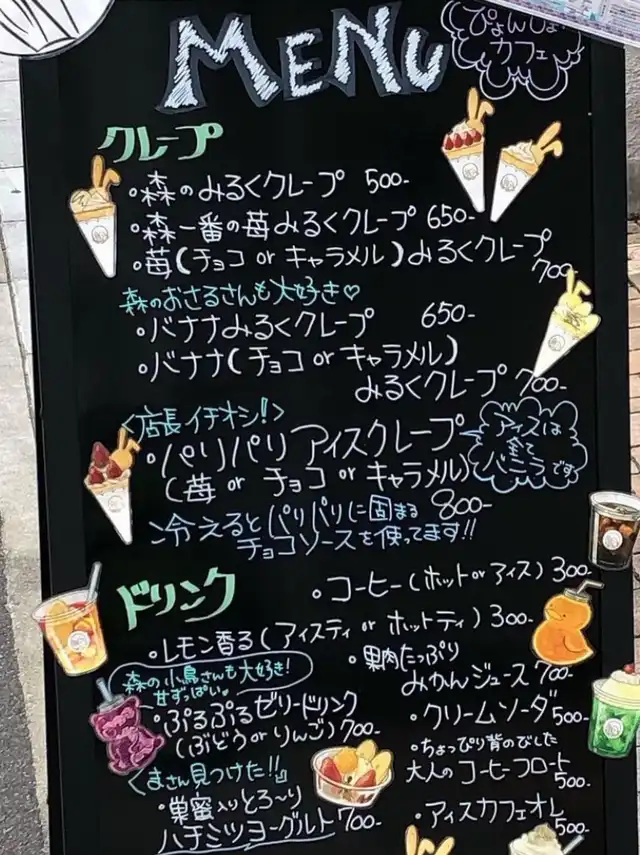 MENU
ぴょんぴょん
カフェ
クレープ
・森のみるくクレープ 500-
・森一番の苺みるくクレープ 650-
・苺(チョコ or キャラメル)みるくクレープ
700-
森のおさるさんも大好き♡
・バナナみるくクレープ 650-
・バナナ(チョコ or キャラメル)
みるくクレープ 700-
<店長イチオシ!>
・パリパリアイスクレープ
(苺 or チョコ or キャラメル)
800-
アイスは
全て
バニラです
冷えるとパリパリに固まる
チョコソースを使ってます!!
ドリンク
・コーヒー(ホット or アイス) 300-
・レモン香る(アイスティ or ホットティ) 300-
森の小鳥さんも大好き!
甘ずっぱい♡
・ぷるぷるゼリードリンク
(ぶどう or りんご) 700-
くまさん見つけた!!
・巣蜜入りとろ〜り
ハチミツヨーグルト 700-
・果肉たっぷり
みかんジュース 700-
・クリームソーダ 500-
・ちょっぴり背のびした
大人のコーヒーフロート
500-
・アイスカフェオレ
500-